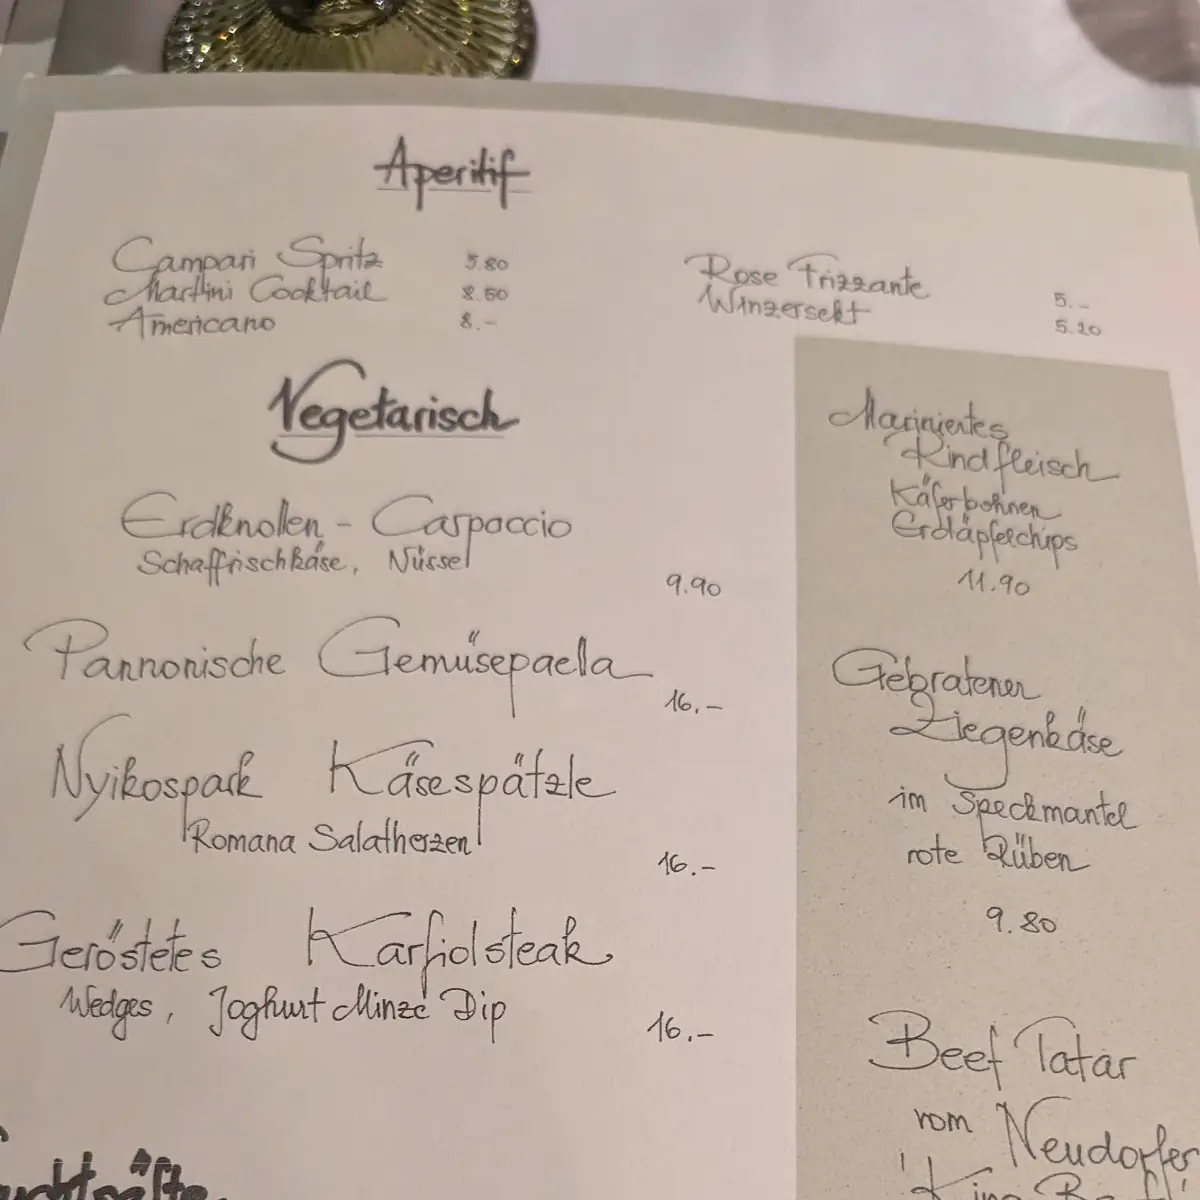 Aperitif
Campari Spritz 5.80
Martini Cocktail 8.50
Americano 8.-
Rose Frizzante 5.-
Winzersekt 5.20
Vegetarisch
Erdknollen - Carpaccio
Schaffrischkäse, Nüsse
9.90
Pannonische Gemüsepaella
16.-
Nyikospark Käsespätzle
Romana Salatherzen
16.-
Geröstetes Karfiolsteak
Wedges, Joghurt Minze Dip
16.-
Mariniertes
Rindfleisch
Käferbohnen
Erdäpfelchips
11.90
Gebratener
Ziegenkäse
im Speckmantel
rote Rüben
9.80
Beef Tatar
vom Neudorfer